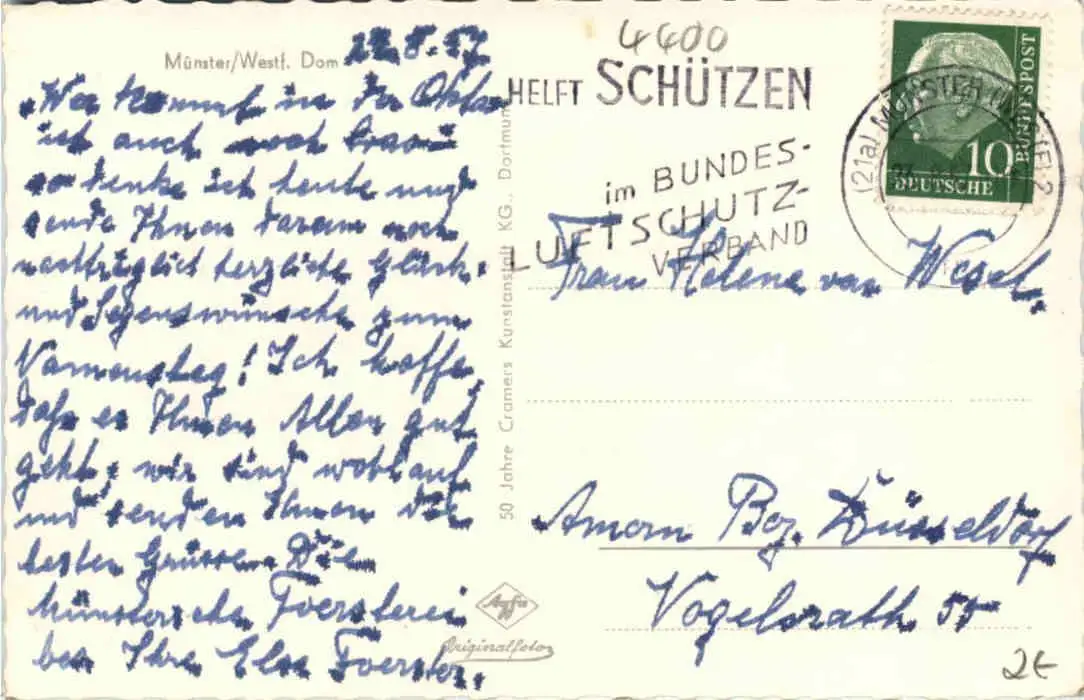 Münster/Westf. Dom
22.8.57
"Wer kommt in der Oktav
ist auch noch brav"
so denke ich heute und
sende Ihnen darum noch
nachträglich herzliche Glück-
und Segenswünsche zum
Namenstag! Ich hoffe,
daß es Ihnen Allen gut
geht, wir sind wohlauf
und senden Ihnen die
besten Grüsse. Die
Münstersche Foersterei
bes. Ihre Else Foerster.
50 Jahre Cramers Kunstanstalt KG., Dortmund
Agfa
Originalfoto
4400
HELFT SCHÜTZEN
im BUNDES-
LUFTSCHUTZ-
VERBAND
(21a) MÜNSTER (WESTF) 2
BUNDESPOST
10
DEUTSCHE
Frau Helene van Wesel.
Amern Bez. Düsseldorf
Vogelsrath 55
2€